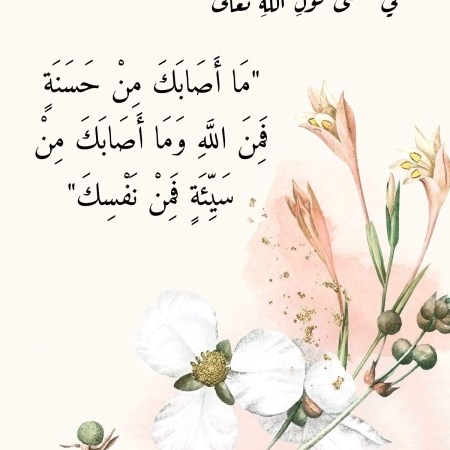 قَوْلِ اللَّهِ تَعَالَى
"مَا أَصَابَكَ مِنْ حَسَنَةٍ
فَمِنَ اللَّهِ وَمَا أَصَابَكَ مِنْ
سَيِّئَةٍ فَمِنْ نَفْسِكَ"